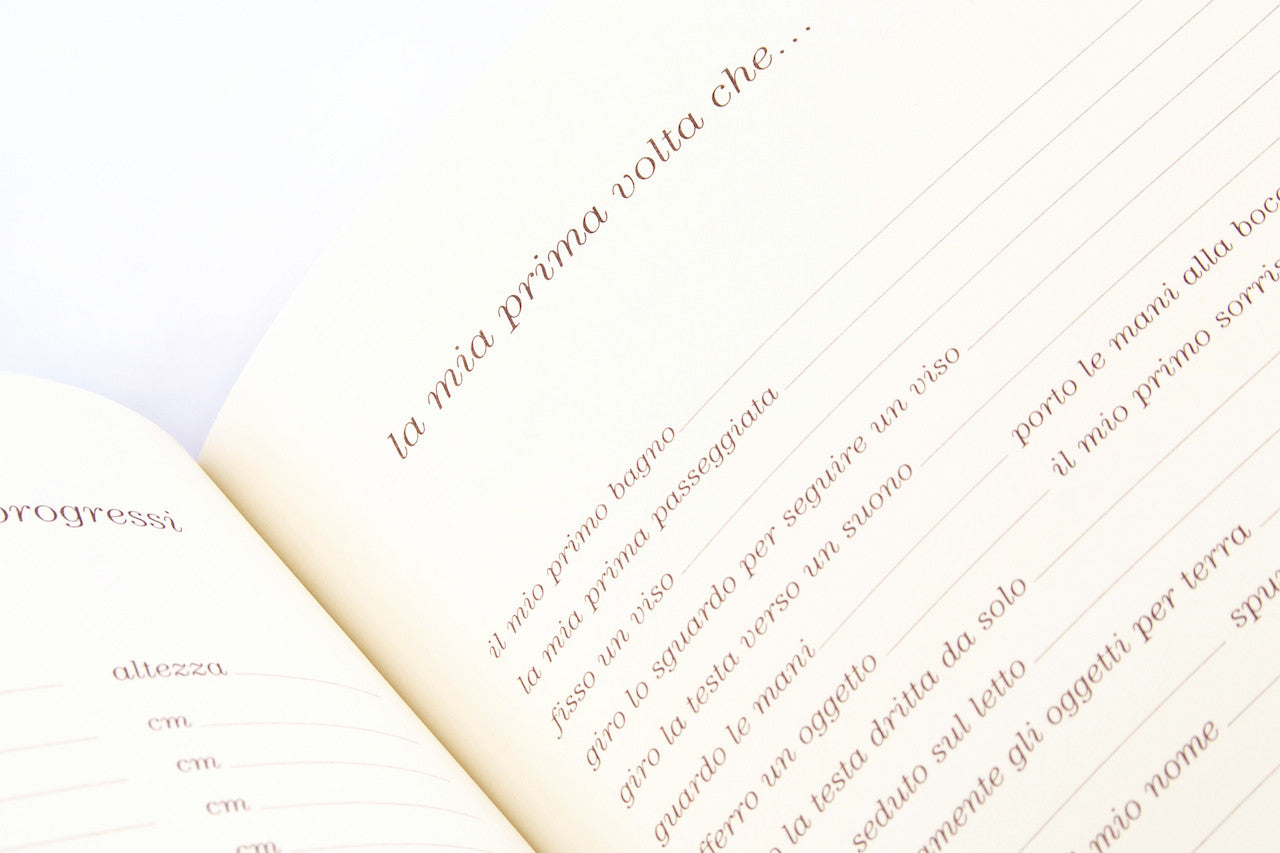 progressi
altezza
cm
cm
cm
cm
la mia prima volta che...
il mio primo bagno
la mia prima passeggiata
fisso un viso
giro lo sguardo per seguire un viso
giro la testa verso un suono
guardo le mani porto le mani alla
un oggetto il mio primo
la testa dritta da solo
seduto sul letto
gli oggetti per terra
mio nome